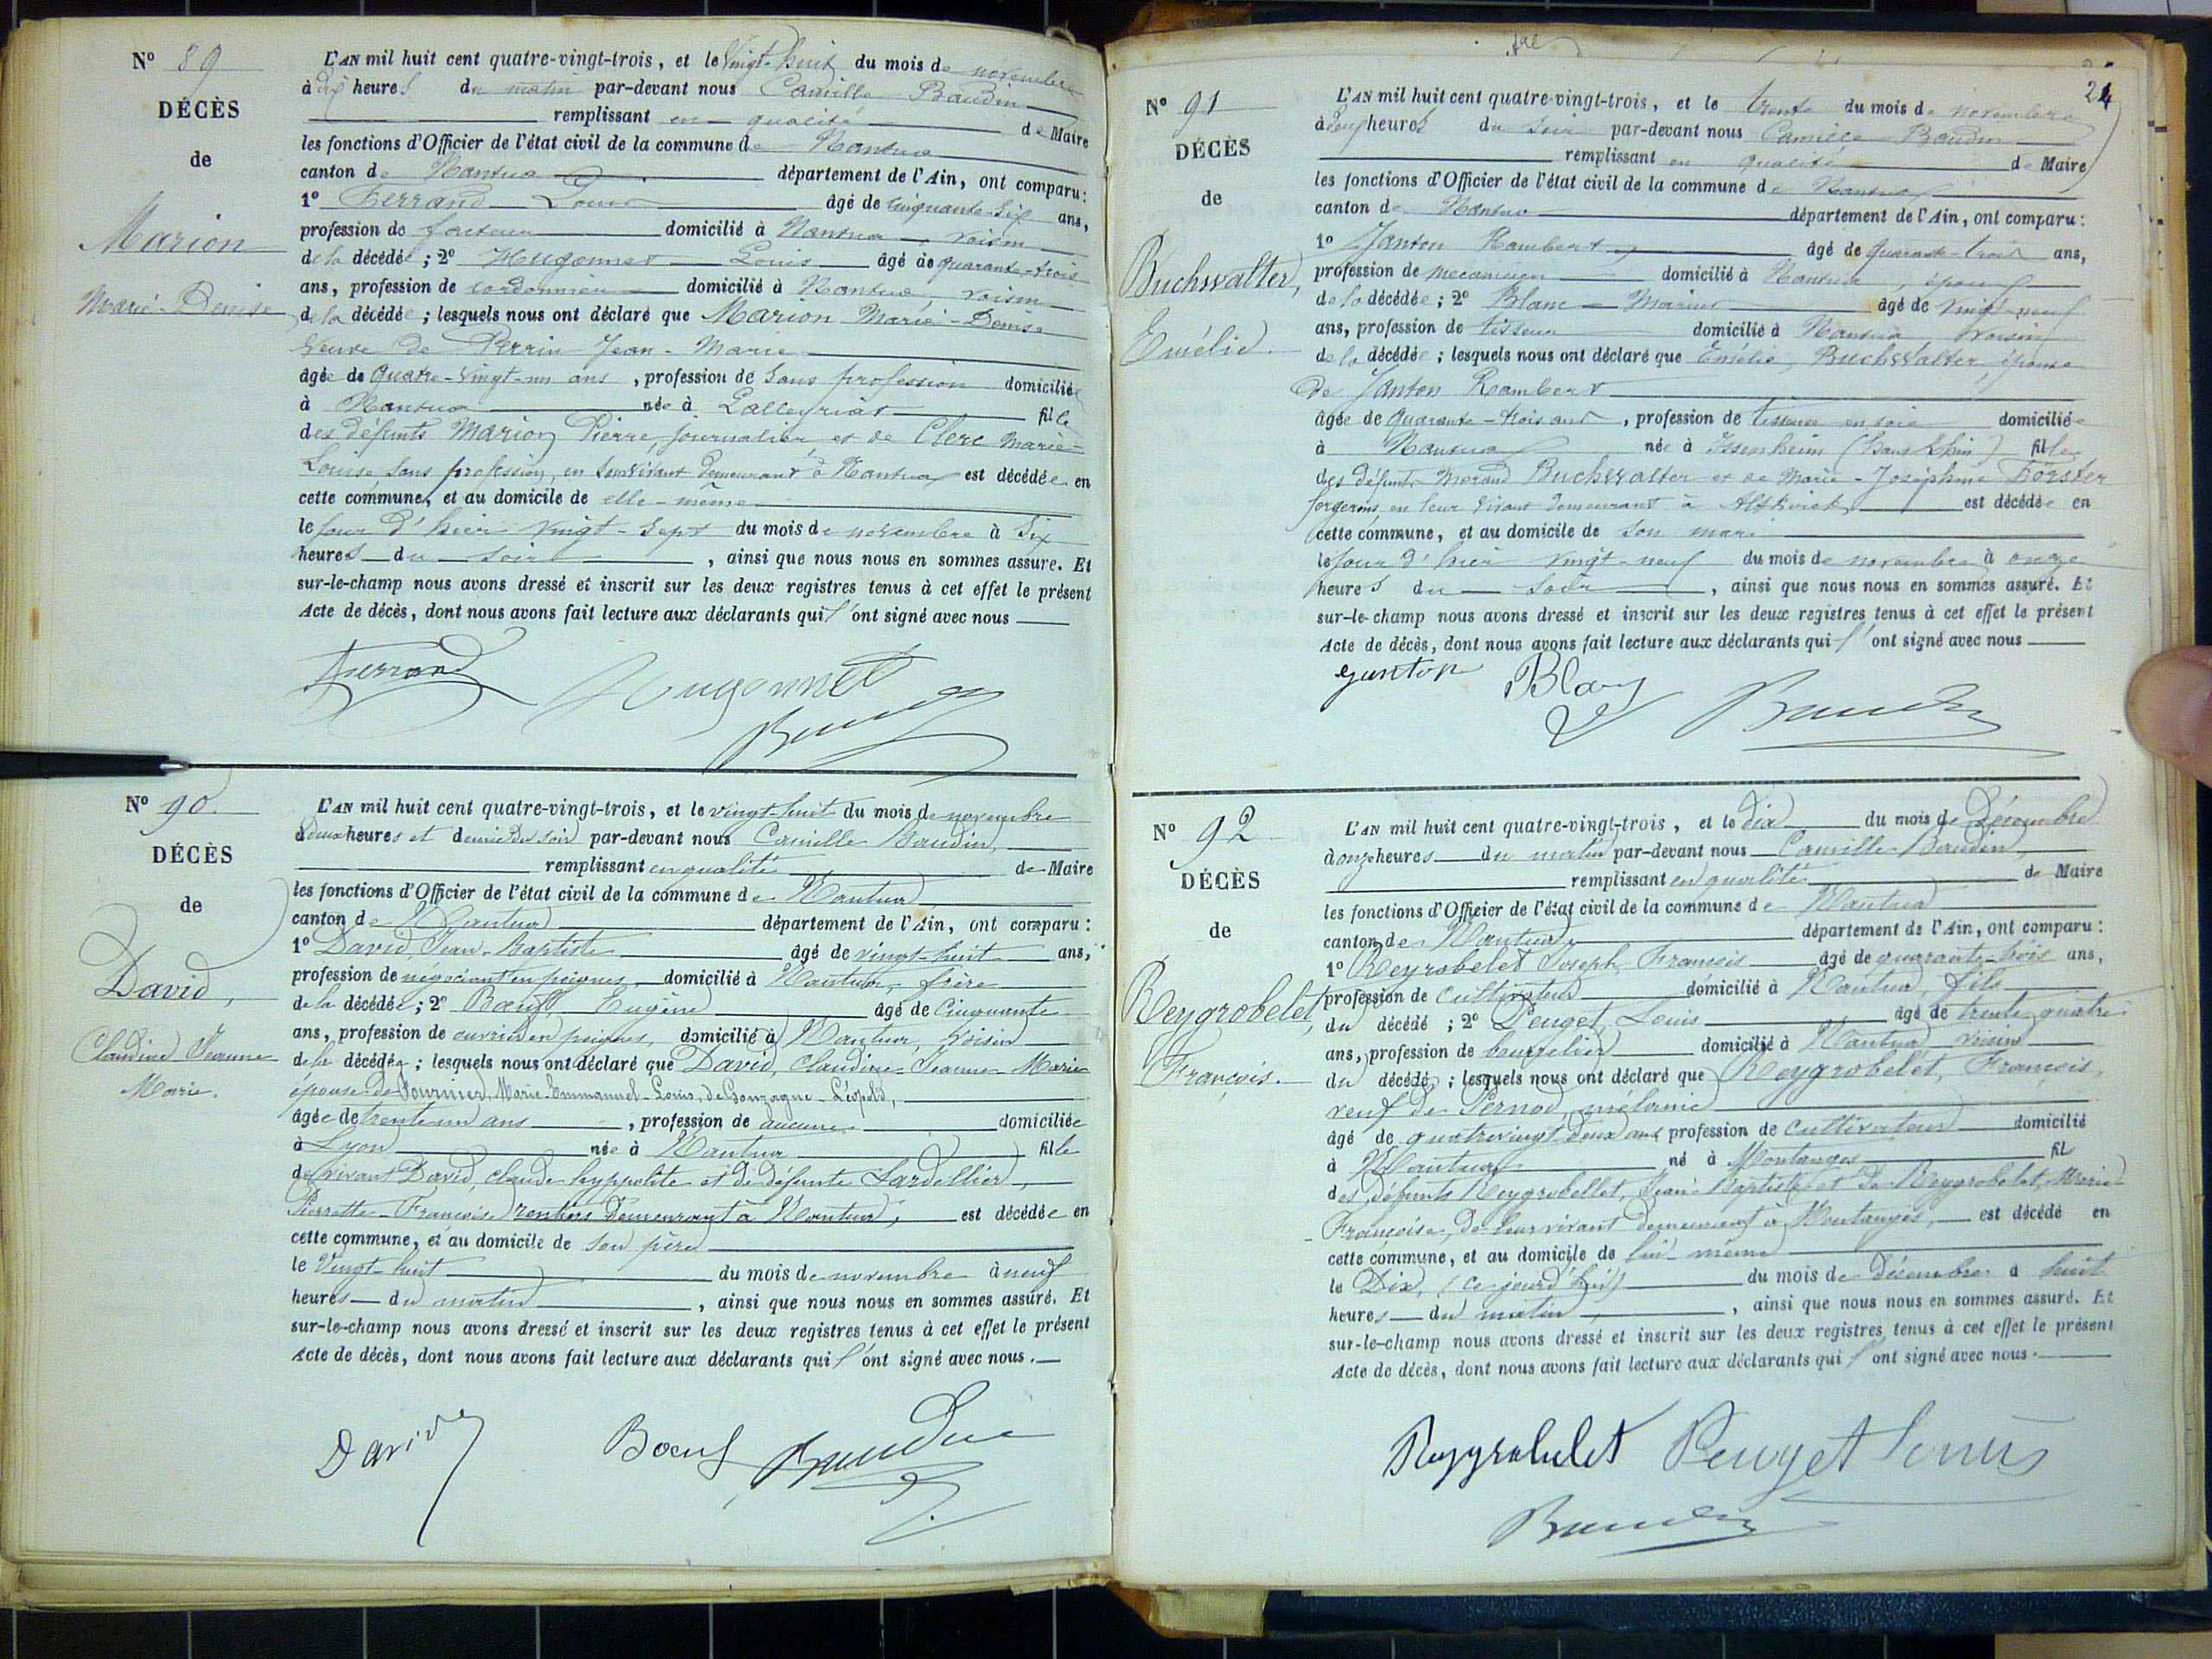 N° 89
DÉCÈS
de
Marion
Marie-Denise
L'AN mil huit cent quatre-vingt-trois, et le Vingt-huit du mois de novembre
à dix heures du matin par-devant nous Camille Baudin
remplissant en qualité de Maire
les fonctions d'Officier de l'état civil de la commune de Nantua
canton de Nantua département de l'Ain, ont comparu:
1° Ferrand Louis âgé de cinquante-six ans,
profession de facteur domicilié à Nantua, voisin
de la décédée; 2° Hugonnet Louis âgé de quarante-trois
ans, profession de cordonnier domicilié à Nantua, voisin
de la décédée; lesquels nous ont déclaré que Marion Marie-Denise
veuve de Perrin Jean-Marie
âgée de quatre-vingt-un ans, profession de sans profession domiciliée
à Nantua née à Lalleyriat fille
des défunts Marion Pierre, journalier et de Clerc Marie-
Louise sans profession, en leur vivant demeurant à Nantua est décédée en
cette commune, et au domicile de elle-même
le jour d'hier vingt-sept du mois de novembre à six
heures du soir, ainsi que nous nous en sommes assuré. Et
sur-le-champ nous avons dressé et inscrit sur les deux registres tenus à cet effet le présent
Acte de décès, dont nous avons fait lecture aux déclarants qui l'ont signé avec nous
Ferrand Hugonnet
Baudin
N° 90.
DÉCÈS
de
David,
Claudine Jeanne
Marie.
L'AN mil huit cent quatre-vingt-trois, et le vingt-huit du mois de novembre
à deux heures et demie du soir par-devant nous Camille Baudin,
remplissant en qualité de Maire
les fonctions d'Officier de l'état civil de la commune de Nantua
canton de Nantua département de l'Ain, ont comparu:
1° David, Jean-Baptiste âgé de vingt-huit ans,
profession de négociant en peignes, domicilié à Nantua, frère
de la décédée; 2° Bœuf, Eugène âgé de Cinquante
ans, profession de ouvrier en peignes, domicilié à Nantua, voisin
de la décédée; lesquels nous ont déclaré que David, Claudine-Jeanne-Marie
épouse de Fournier, Marie-Emmanuel-Louis, de Gonzague-Léopold,
âgée de trente un ans, profession de aucune domiciliée
à Lyon née à Nantua fille
de vivant David, claude hyppolite et de défunte Lardellier,
Pierrette-Françoise, rentiers demeurant à Nantua, est décédée en
cette commune, et au domicile de son père
le Vingt-huit du mois de novembre à neuf
heures du matin, ainsi que nous nous en sommes assuré. Et
sur-le-champ nous avons dressé et inscrit sur les deux registres tenus à cet effet le présent
Acte de décès, dont nous avons fait lecture aux déclarants qui l'ont signé avec nous.
David Bœuf Baudin
24
N° 91
DÉCÈS
de
Buchswalter,
Emélie.
L'AN mil huit cent quatre-vingt-trois, et le trente du mois de novembre
à deux heures du soir par-devant nous Camille Baudin
remplissant en qualité de Maire
les fonctions d'Officier de l'état civil de la commune de Nantua
canton de Nantua département de l'Ain, ont comparu:
1° Janton Rambert âgé de quarante-trois ans,
profession de mécanicien domicilié à Nantua, époux
de la décédée; 2° Blanc Marius âgé de vingt-neuf
ans, profession de tisseur domicilié à Nantua voisin
de la décédée; lesquels nous ont déclaré que Emélie, Buchswalter, épouse
de Janton Rambert
âgée de quarante-trois ans, profession de tisseuse en soie domiciliée
à Nantua née à Issenheim (Haut Rhin) fille
des défunts Morand Buchswalter et de Marie-Joséphine Förster
forgerons, en leur vivant demeurant à Altkirch est décédée en
cette commune, et au domicile de son mari
le jour d'hier vingt-neuf du mois de novembre à onze
heures du soir, ainsi que nous nous en sommes assuré. Et
sur-le-champ nous avons dressé et inscrit sur les deux registres tenus à cet effet le présent
Acte de décès, dont nous avons fait lecture aux déclarants qui l'ont signé avec nous
Janton Blanc Baudin
N° 92
DÉCÈS
de
Reygrobelet,
François.
L'AN mil huit cent quatre-vingt-trois, et le dix du mois de Décembre
à onze heures du matin par-devant nous Camille Baudin,
remplissant en qualité de Maire
les fonctions d'Officier de l'état civil de la commune de Nantua
canton de Nantua, département de l'Ain, ont comparu:
1° Reygrobelet Joseph François âgé de quarante-trois ans,
profession de Cultivateur domicilié à Nantua, fils
du décédé; 2° Peuget, Louis âgé de trente-quatre
ans, profession de bourrelier domicilié à Nantua voisin
du décédé; lesquels nous ont déclaré que Reygrobelet, François,
veuf de Pernod, mélanie
âgé de quatrevingt deux ans profession de Cultivateur domicilié
à Nantua né à Montanges fil
des défunts Reygrobellet, Jean-Baptiste et de Reygrobelet, Marie
Françoise, de leur vivant demeurant à Montanges, est décédé en
cette commune, et au domicile de lui-même
le Dix, (ce jourd'hui) du mois de Décembre à huit
heures du matin, ainsi que nous nous en sommes assuré. Et
sur-le-champ nous avons dressé et inscrit sur les deux registres tenus à cet effet le présent
Acte de décès, dont nous avons fait lecture aux déclarants qui l'ont signé avec nous.
Reygrobelet Peuget Louis
Baudin